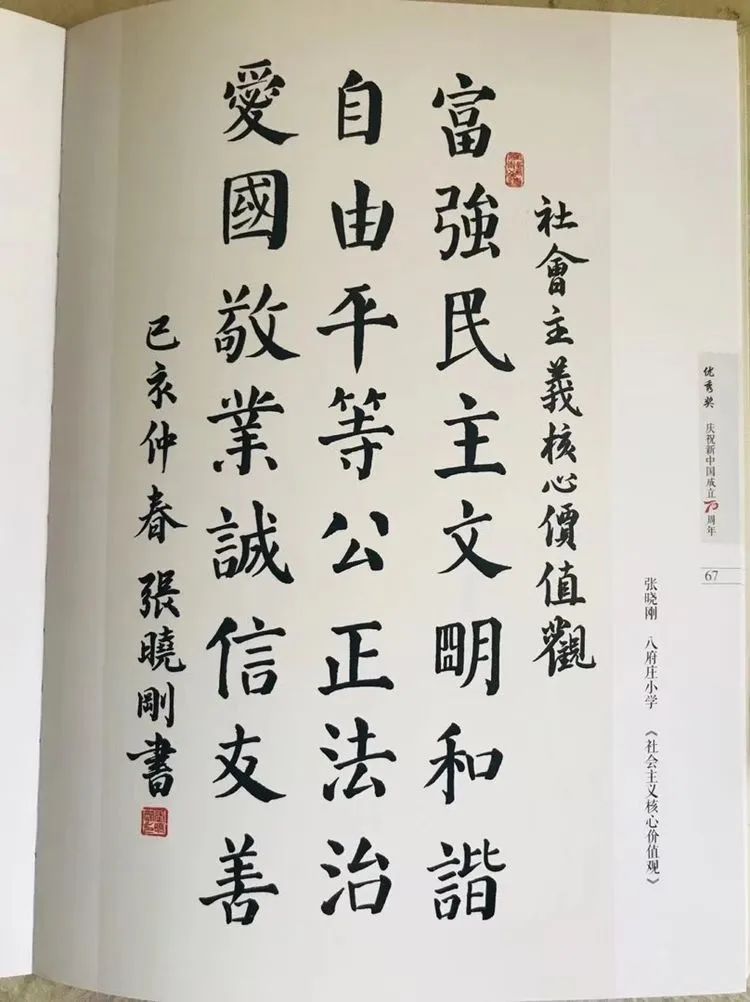 社會主義核心價值觀
富強民主文明和諧
自由平等公正法治
愛國敬業誠信友善
己亥仲春 張曉剛書
优秀奖 庆祝新中国成立70周年
67
张晓刚 八府庄小学 《社会主义核心价值观》